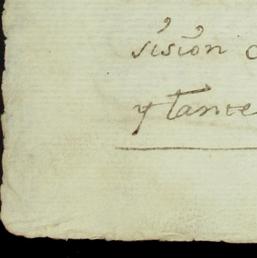 sision
y tante